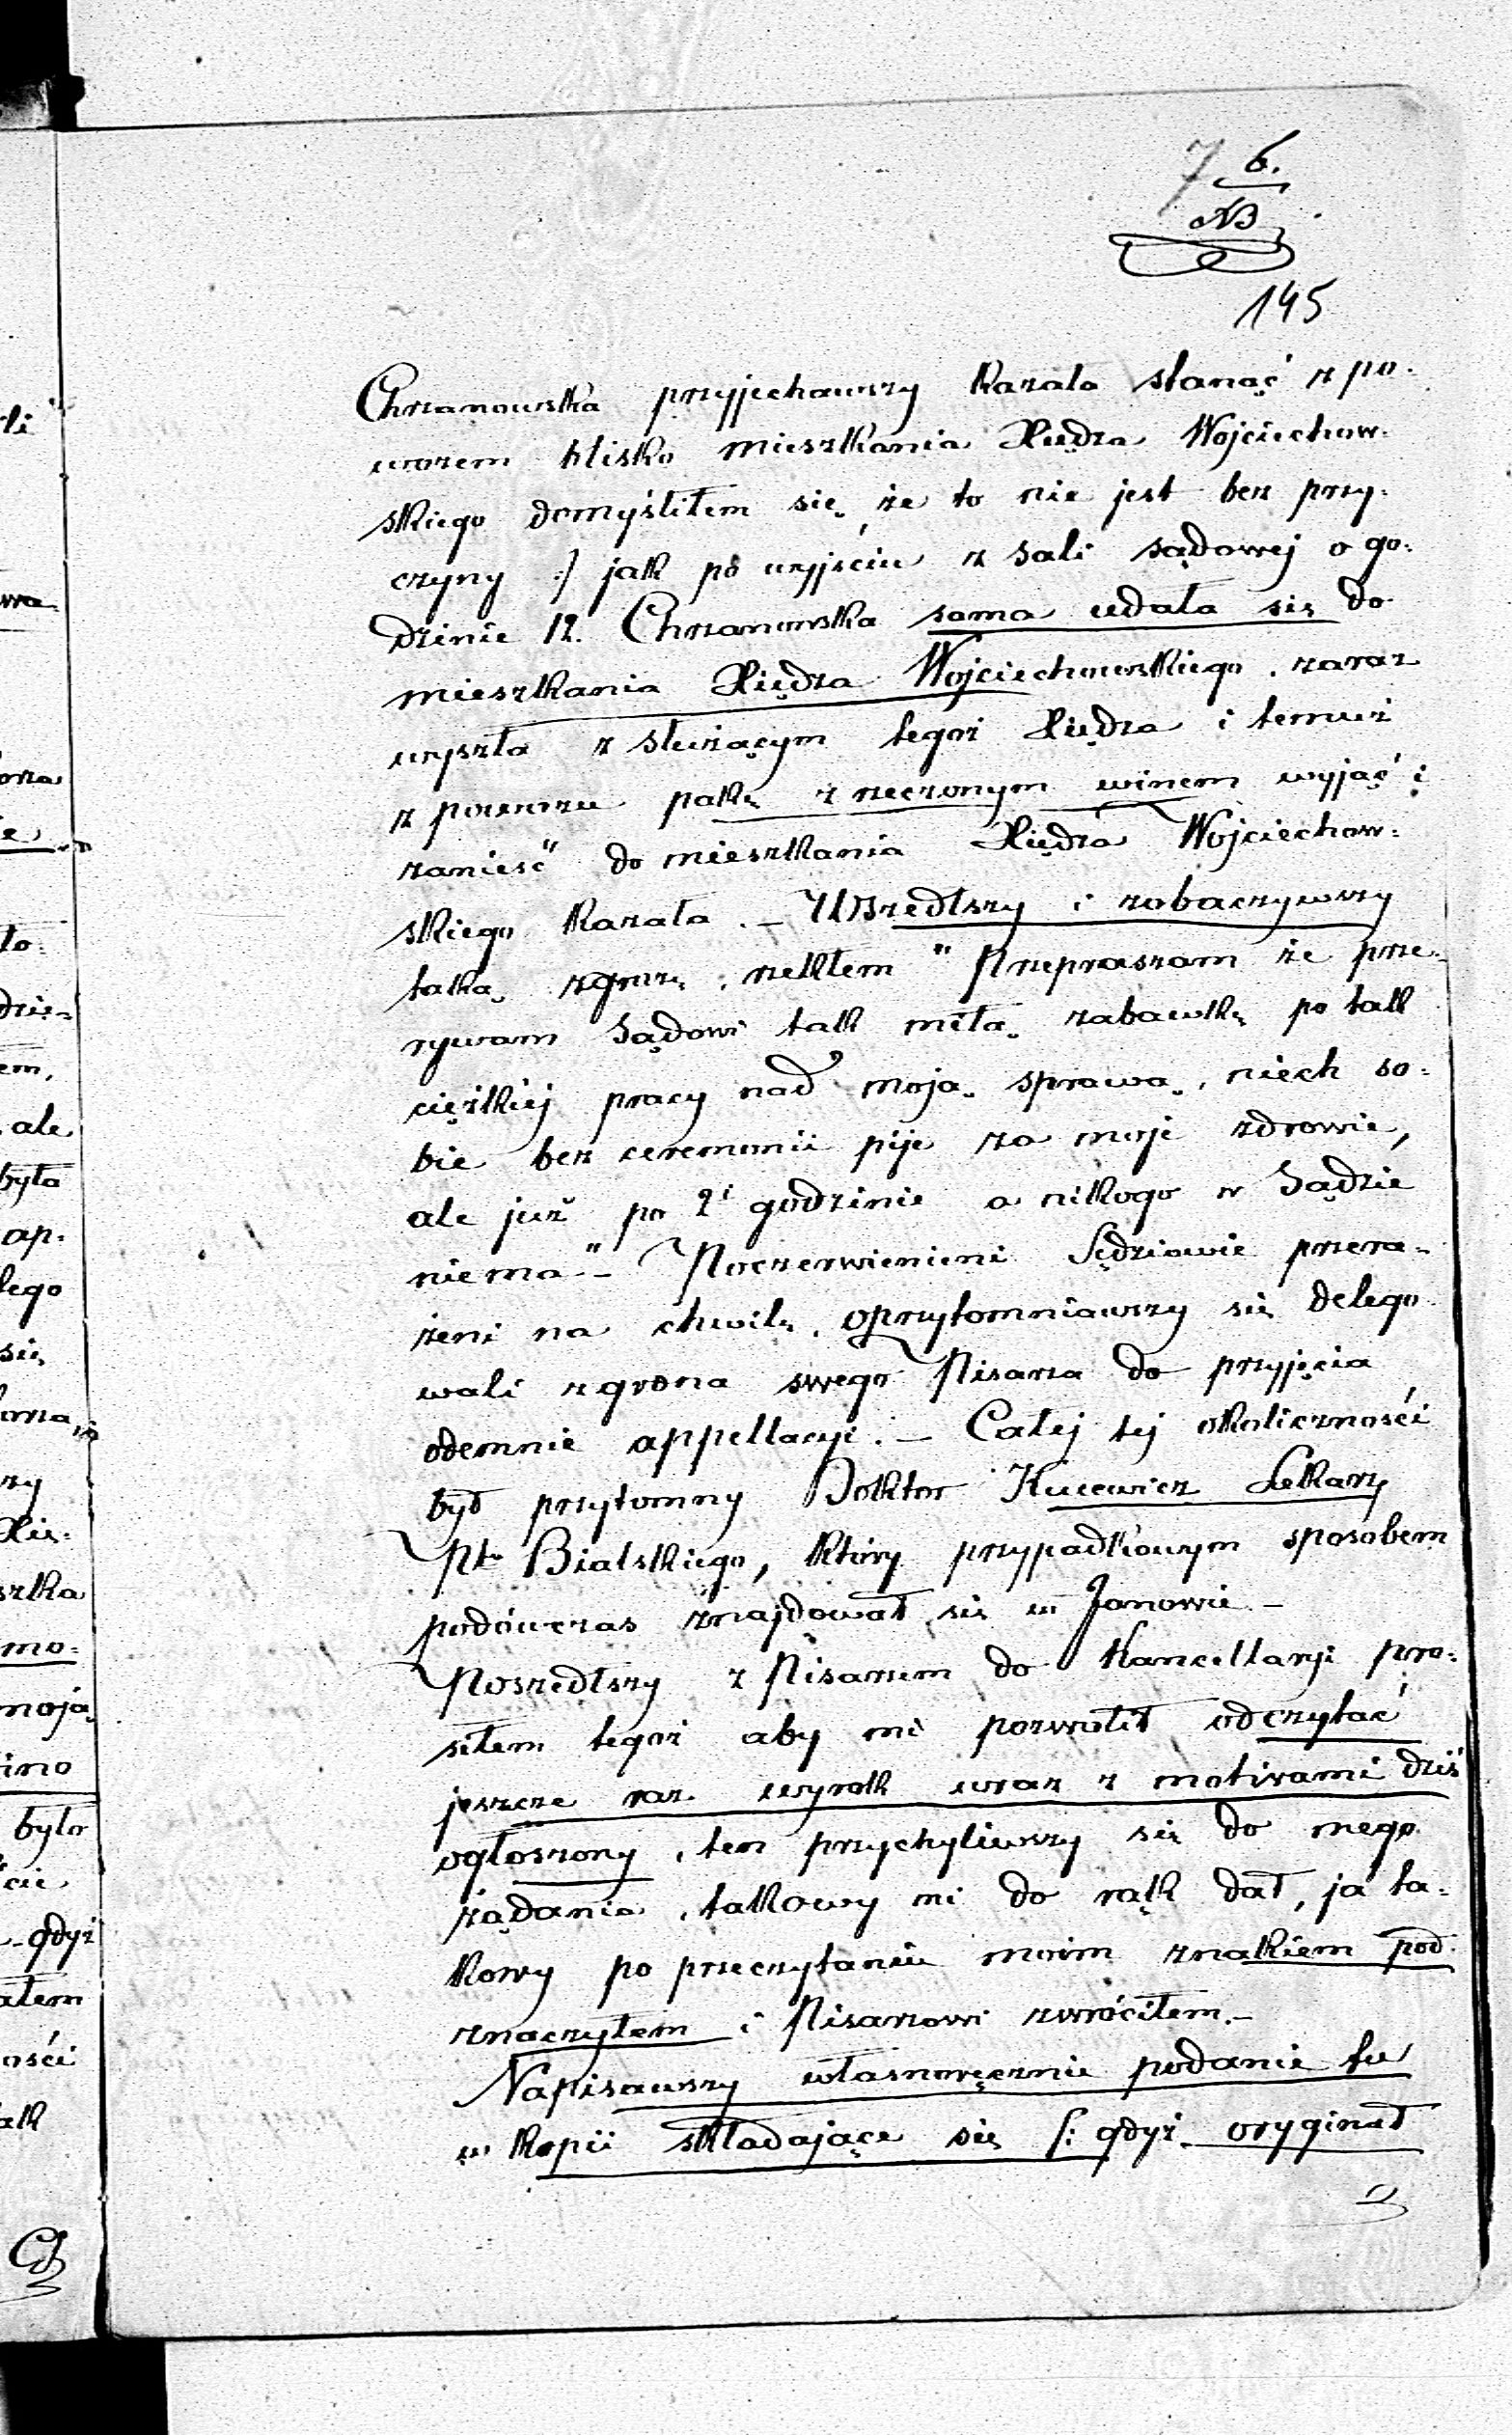 7 6.
NB
145
Chrzanowska przyjechawszy kazała stanąć z po-
wozem blisko mieszkania Xiędza Wojciechow-
skiego domyśliłem się że to nie jest bez przy-
czyny :/ jak po wyjściu z Sali sądowej o go-
dzinie 12. Chrzanowska sama udała się do
mieszkania Xiędza Wojciechowskiego, zaraz
wyszła z służącym tegoż Xiędza i temuż
z powozu pakę z rzeczonym winem wyjąć i
zanieść do mieszkania Xiędza Wojciechow-
skiego kazała. – Wszedłszy i zobaczywszy
taką zgrozę, rzekłem "Przepraszam że prze-
rywam Sądowi tak miłą zabawkę po tak
ciężkiej pracy nad moją sprawą, niech so-
bie bez ceremonii pije za moje zdrowie,
ale już po 2i godzinie a nikogo w Sądzie
niema" – Poczerwienieni Sędziowie przera-
żeni na chwilę, oprzytomniawszy się delego
wali z grona swego Pisarza do przyjęcia
odemnie appellacyi. – Całej tej okoliczności
był przytomny Doktor Kucewicz Lekarz
Ptu Bialskiego, który przypadkowym sposobem
podówczas znajdował się w Janowie –
Poszedłszy z Pisarzem do Kancellaryi pro-
siłem tegoż aby mi pozwolił odczytać
jeszcze raz wyrok wraz z motivami dziś
ogłoszony, ten przychyliwszy się do mego
żądania, takowy mi do rąk dał, ja ta-
kowy po przeczytaniu moim znakiem pod
znaczyłem i Pisarzowi zwróciłem. –
Napisawszy własnoręcznie podanie tu
w kopii składające się /: gdyż oryginał